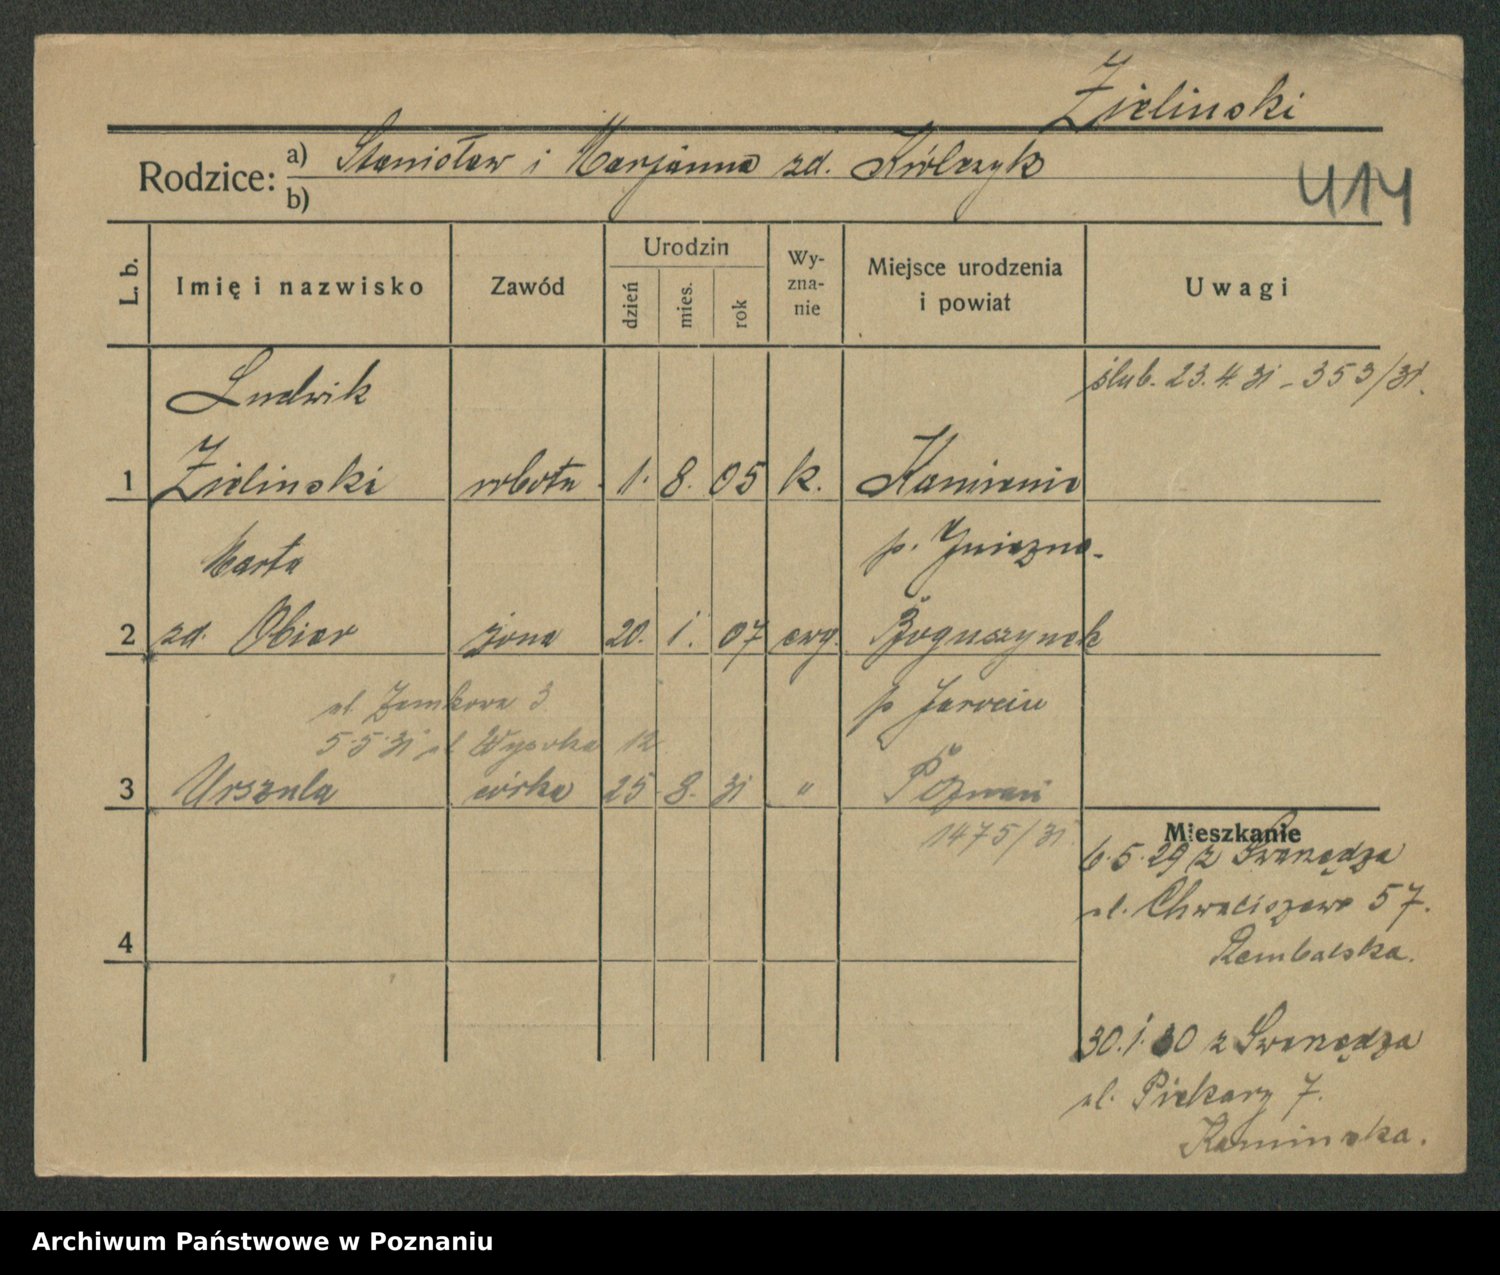 Zielinski
Rodzice: a) Stanisław i Marjanna zd. Królczyk
b)
414
L. b. Imię i nazwisko Zawód Urodzin dzień mies. rok Wy-zna-nie Miejsce urodzenia i powiat Uwagi
Ludwik ślub. 23.4.31 - 353/31.
1 Zielinski robotn. 1. 8. 05 k. Kamienie
Marta p. Gniezno.
2 zd. Obier żona 20. 1. 07 ewg. Boguszynek
ul. Zamkowa 3 p Jarocin
5.5.31 ul Wysoka 12
3 Urszula córka 25 8. 31 " Poznań
1475/31.
Mieszkanie
6.5.29 z Swarzędza
ul. Chwaliszewo 57.
4
30.1.30 z Swarzędza
ul. Piekary 7.
Kaminska.
Archiwum Państwowe w Poznaniu